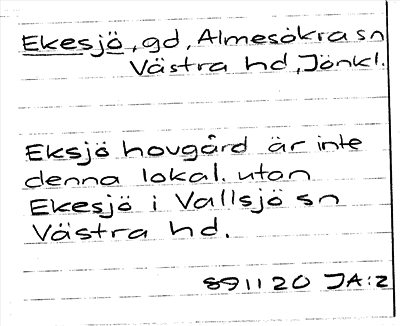 Ekesjö, gd, Almesåkra sn
Västra hd, Jönkl.
Eksjö hovgård är inte
denna lokal. utan
Ekesjö i Vallsjö sn
Västra hd.
891120 JA:2